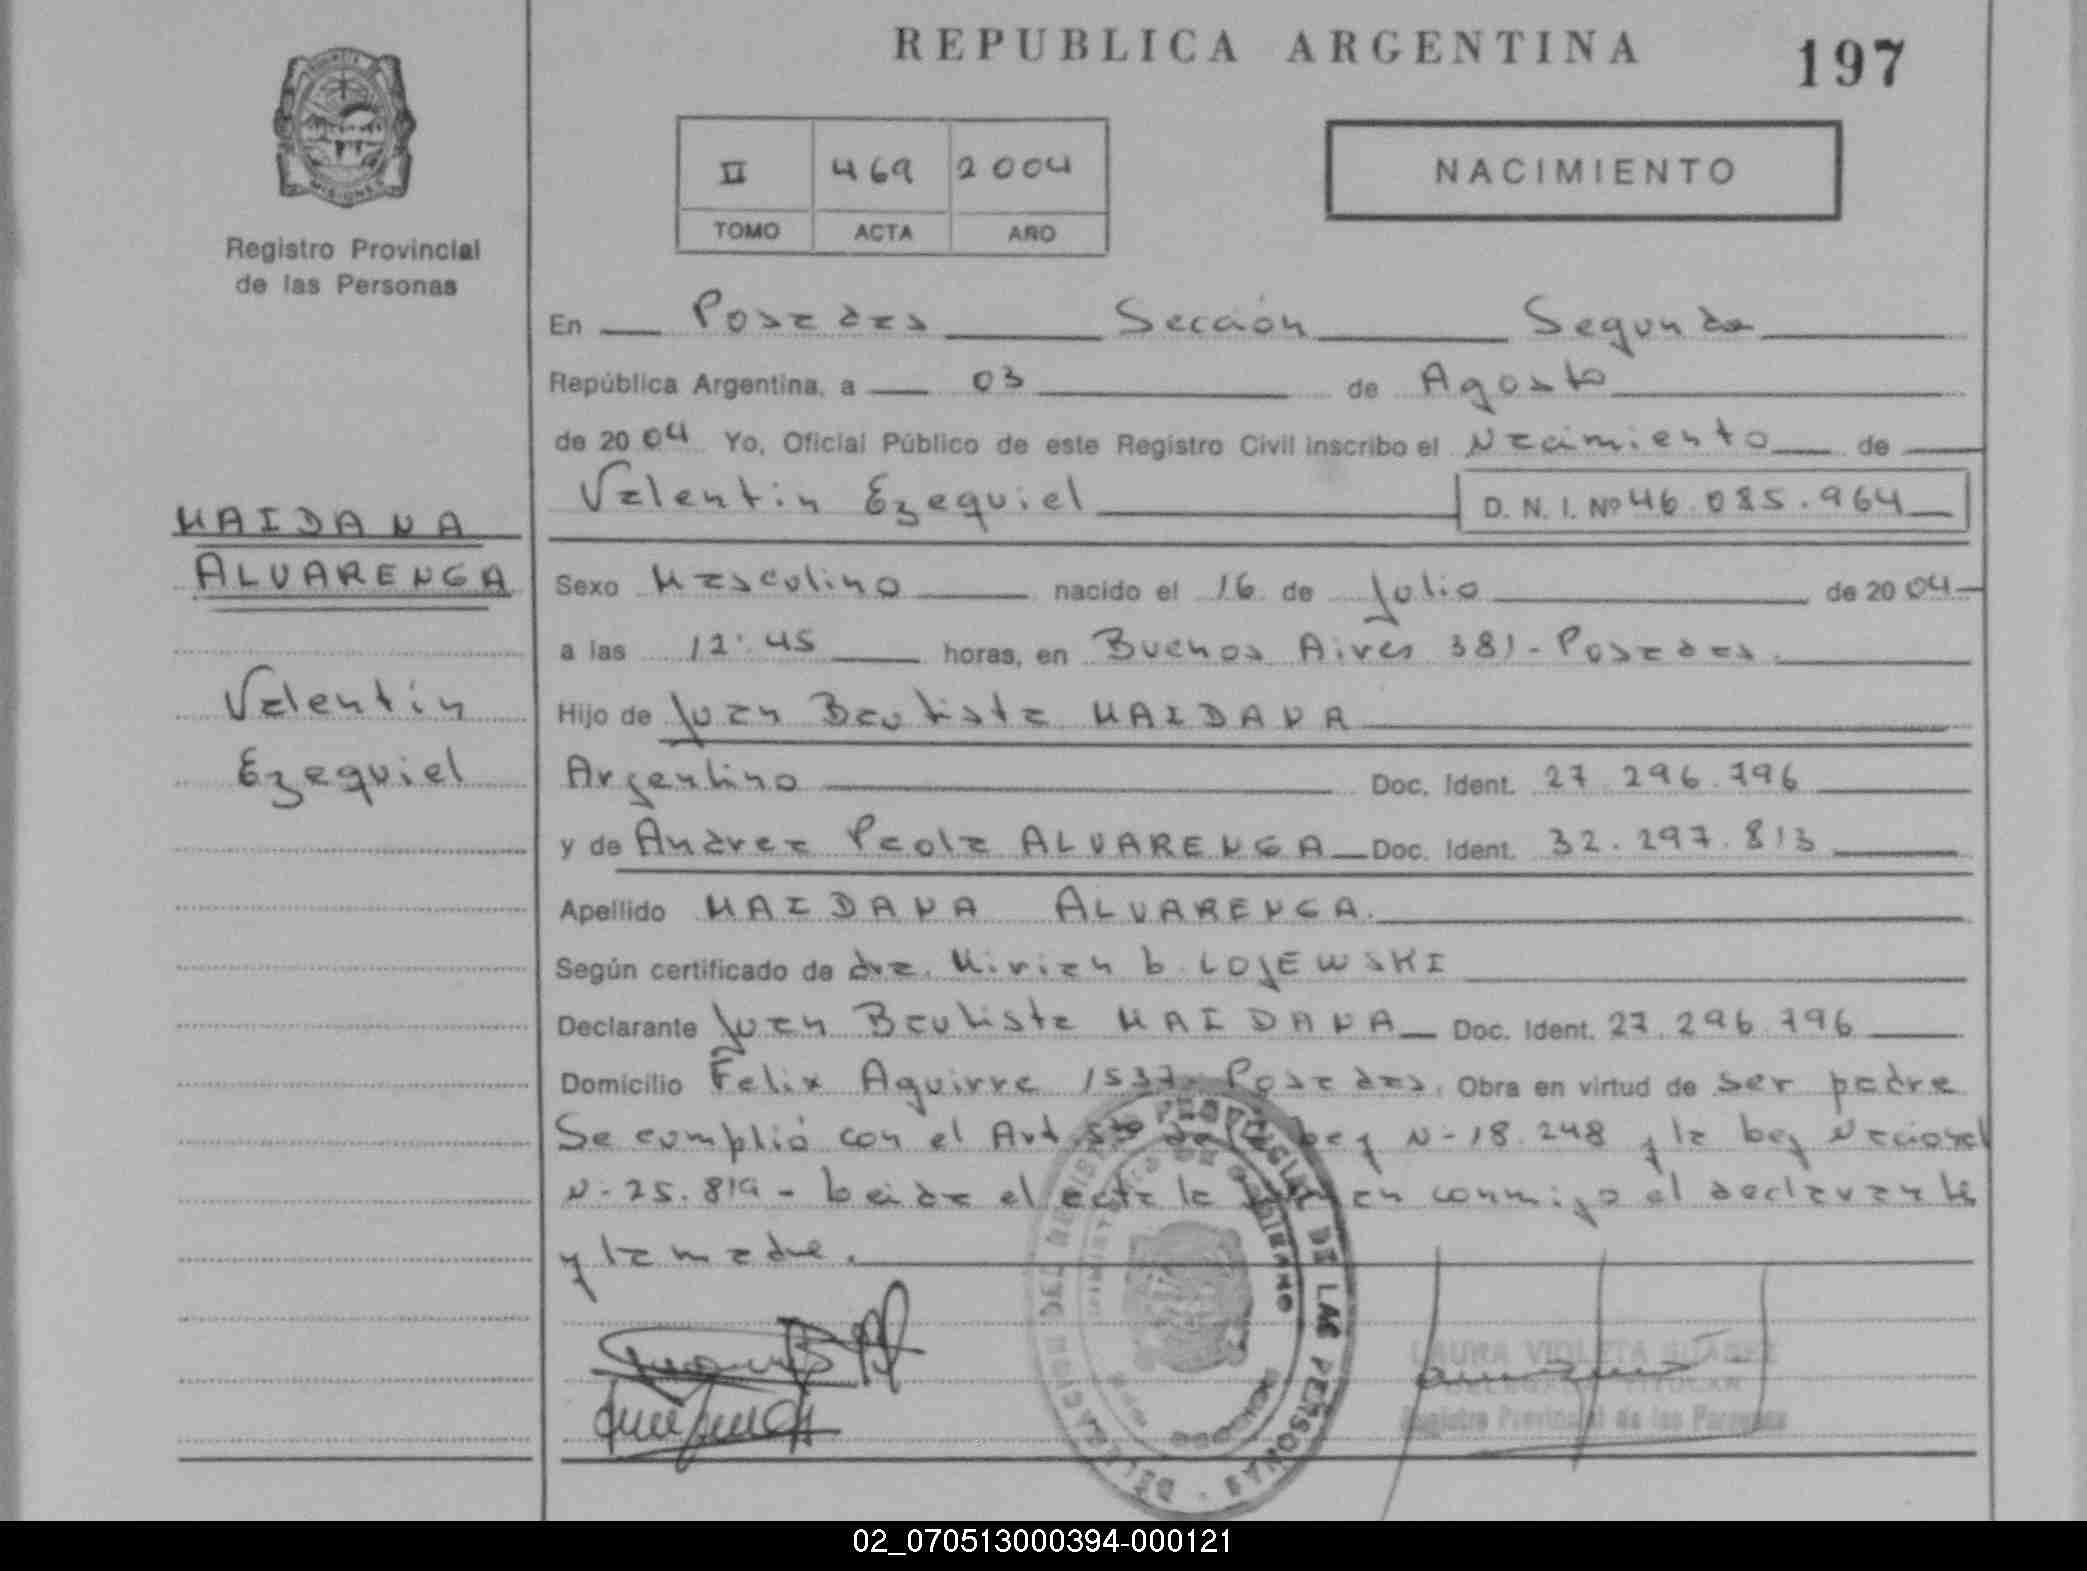 REPUBLICA ARGENTINA
197
PROVINCIA
MISIONES
Registro Provincial
de las Personas
II 469 2004
TOMO ACTA AÑO
NACIMIENTO
En Posadas Sección Segunda
República Argentina, a 03 de Agosto
de 2004 Yo, Oficial Público de este Registro Civil inscribo el Nacimiento de
Valentin Ezequiel D. N. I. Nº 46.085.964
MAIDANA
ALVARENGA
Valentin
Ezequiel
Sexo Masculino nacido el 16 de Julio de 2004
a las 12:45 horas, en Buenos Aires 381 - Posadas.
Hijo de Juan Bautista MAIDANA
Argentino Doc. Ident. 27.296.796
y de Andrea Paola ALVARENGA Doc. Ident. 32.297.813
Apellido MAIDANA ALVARENGA.
Según certificado de dra. Mirian b. LOJEWSKI
Declarante Juan Bautista MAIDANA Doc. Ident. 27.296.796
Domicilio Felix Aguirre 1537 - Posadas. Obra en virtud de ser padre
Se cumplió con el Art. de la Ley N-18.248 y la Ley Nacional
N-25.819 - Leida el acta la firman conmigo el declarante
y la madre.
DELEGACION DEL REGISTRO PROVINCIAL DE LAS PERSONAS
MINISTERIO DE GOBIERNO
LAURA VIOLETA SUAREZ
DELEGADA TITULAR
Registro Provincial de las Personas
02_070513000394-000121